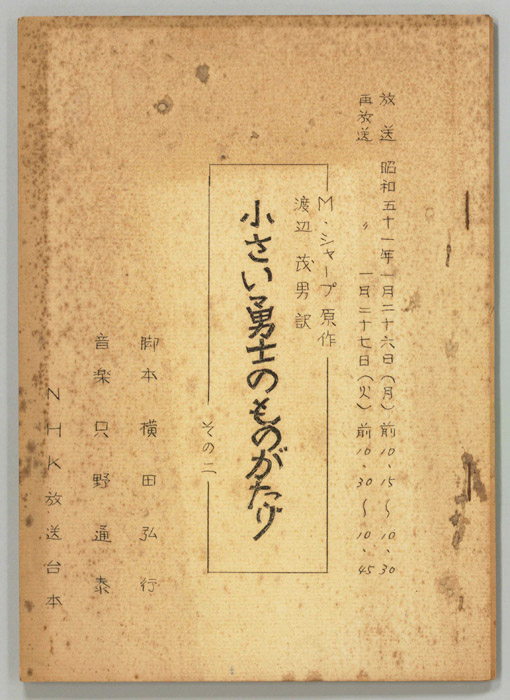 放送 昭和五十一年一月二十六日(月)前10、15~10、30
再放送 〃 一月二十七日(火)前10、30~10、45
M・シャープ 原作
渡辺 茂男 訳
小さい勇士のものがたり
その二
脚本 横田弘行
音楽 只野通泰
NHK放送台本